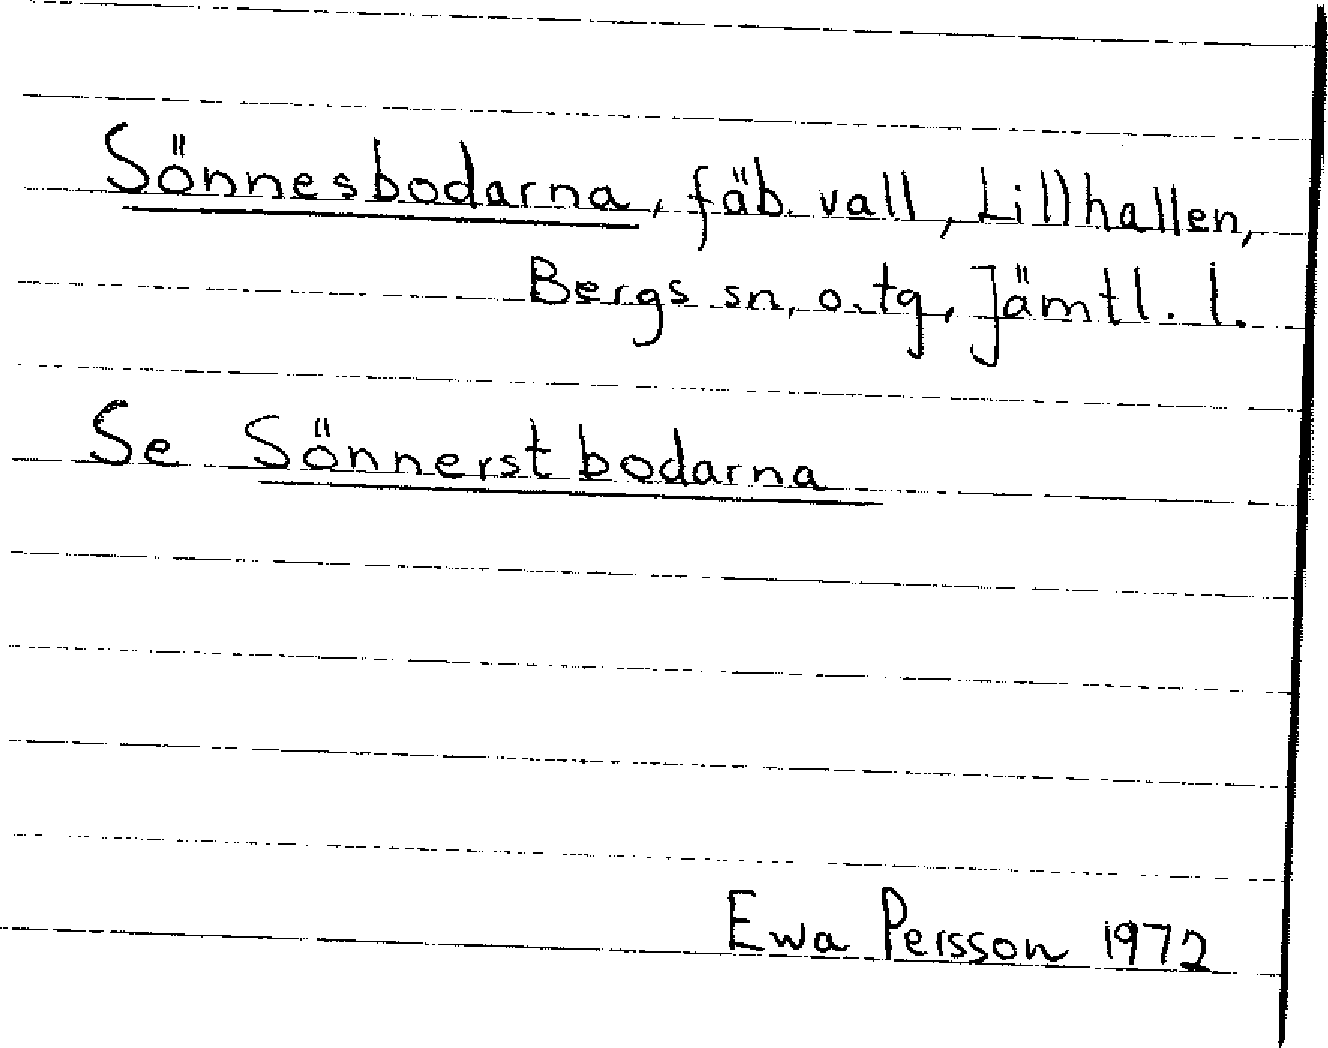 Sönnesbodarna, fäb. vall, Lillhallen,
Bergs sn, o. tg, Jämtl. l.
Se Sönnerstbodarna
Ewa Persson 1972